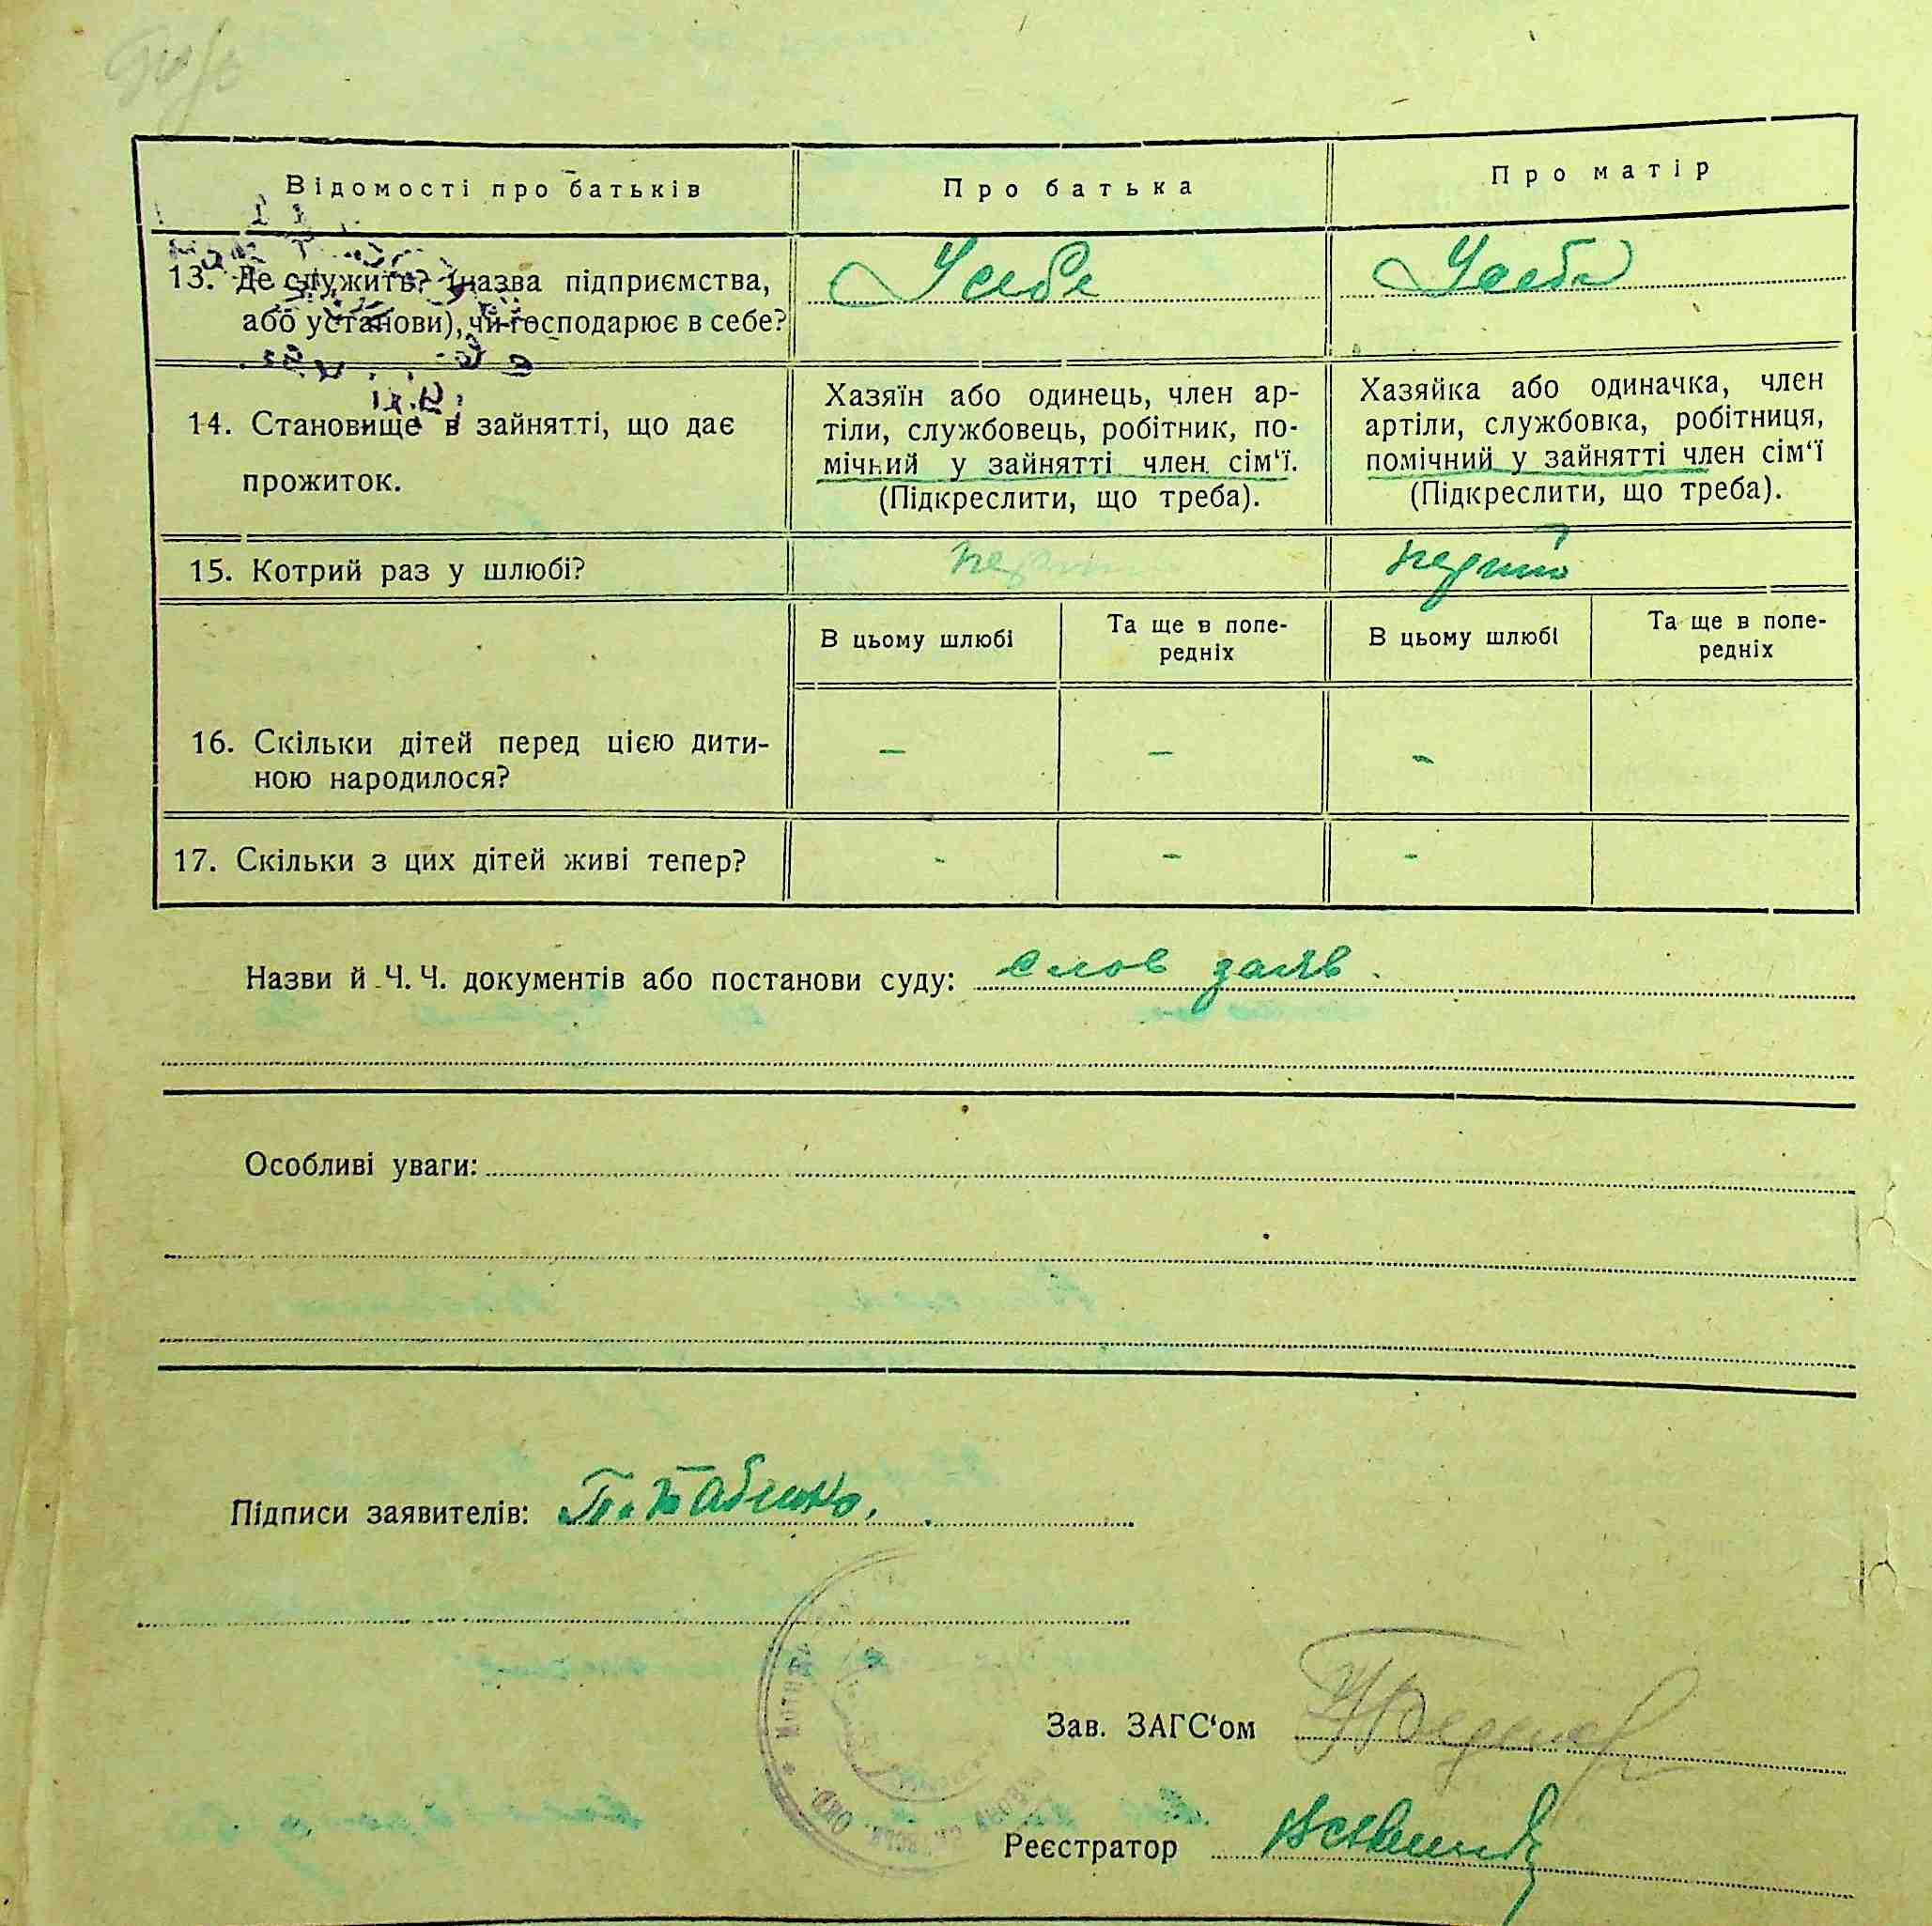 Відомості про батьків
Про батька
Про матір
13. Де служить? (назва підприємства,
або установи), чи господарює в себе?
У себе
У себе
14. Становище в зайнятті, що дає
прожиток.
Хазяїн або одинець, член ар-
тіли, службовець, робітник, по-
мічний у зайнятті член сім‘ї.
(Підкреслити, що треба).
Хазяйка або одиначка, член
артіли, службовка, робітниця,
помічний у зайнятті член сім‘ї
(Підкреслити, що треба).
15. Котрий раз у шлюбі?
перший
перший
В цьому шлюбі
Та ще в попе-
редніх
В цьому шлюбі
Та ще в попе-
редніх
16. Скільки дітей перед цією дити-
ною народилося?
–
–
–
17. Скільки з цих дітей живі тепер?
-
–
-
Назви й Ч. Ч. документів або постанови суду: слов заяв.
Особливі уваги:
Підписи заявителів:
Зав. ЗАГС‘ом
Реєстратор